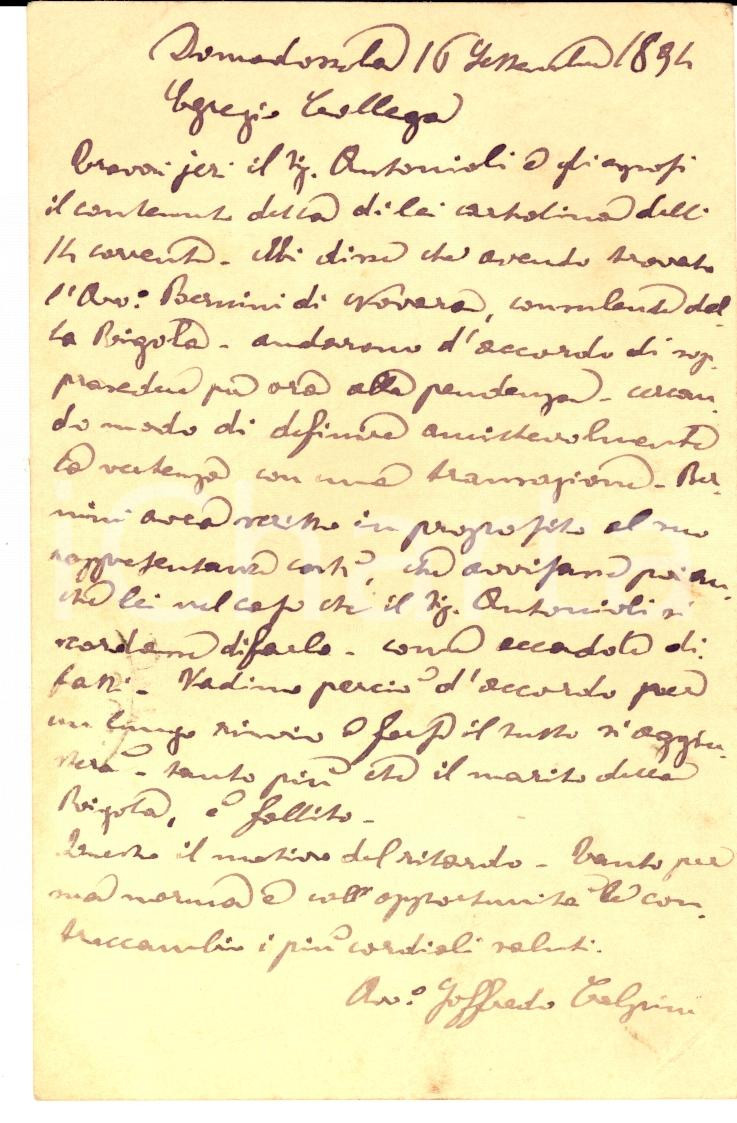 Domodossola 16 Settembre 1894
Egregio Collega
Trovai jeri il Sig. Antonioli e gli esposi
il contenuto della di lei cartolina delli
14 corrente - Mi disse che avendo trovato
l'Avv.o Bernini di Novara, consulente del-
la Bigotta - andarono d'accordo di sop-
prasedere per ora alla pendenza - cercan-
do modo di definire amichevolmente
la vertenza con una transazione - Ber-
nini avea scritto in proposito al suo
rappresentante costì, che avvisasse poi an-
che lei nel caso che il Sig. Antonioli si
scordasse di farlo - come accadde di-
fatti - Vadino perciò d'accordo per
un lungo rinvio e forse il tutto si aggiu-
sterà - tanto più che il marito della
Bigotta, è fallito -
Questo il motivo del ritardo - Tanto per
sua norma e coll'opportunità le con-
traccambio i più cordiali saluti.
Avv.o Goffredo